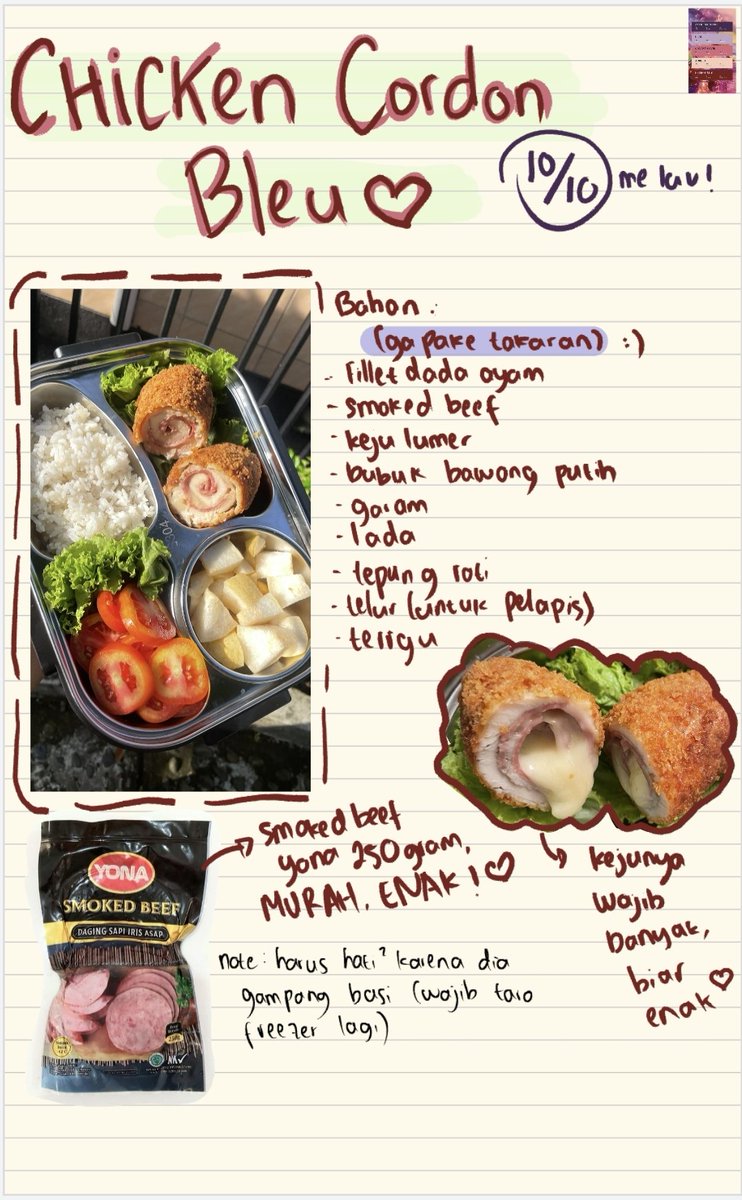 CHicken Cordon
Bleu
10/10 me lav!
Bahan :
(ga pake takaran) :)
- Fillet dada ayam
- smoked beef
- keju lumer
- bubuk bawang putih
- garam
- lada
- tepung roti
- telur (untuk pelapis)
- terigu
smoked beef
yona 250 gram,
MURAH, ENAK!
kejunya
wajib
banyak,
biar
enak
note: harus hati² karena dia
gampang basi (wajib taro
freezer lagi)
304
YONA
SMOKED BEEF
DAGING SAPI IRIS ASAP